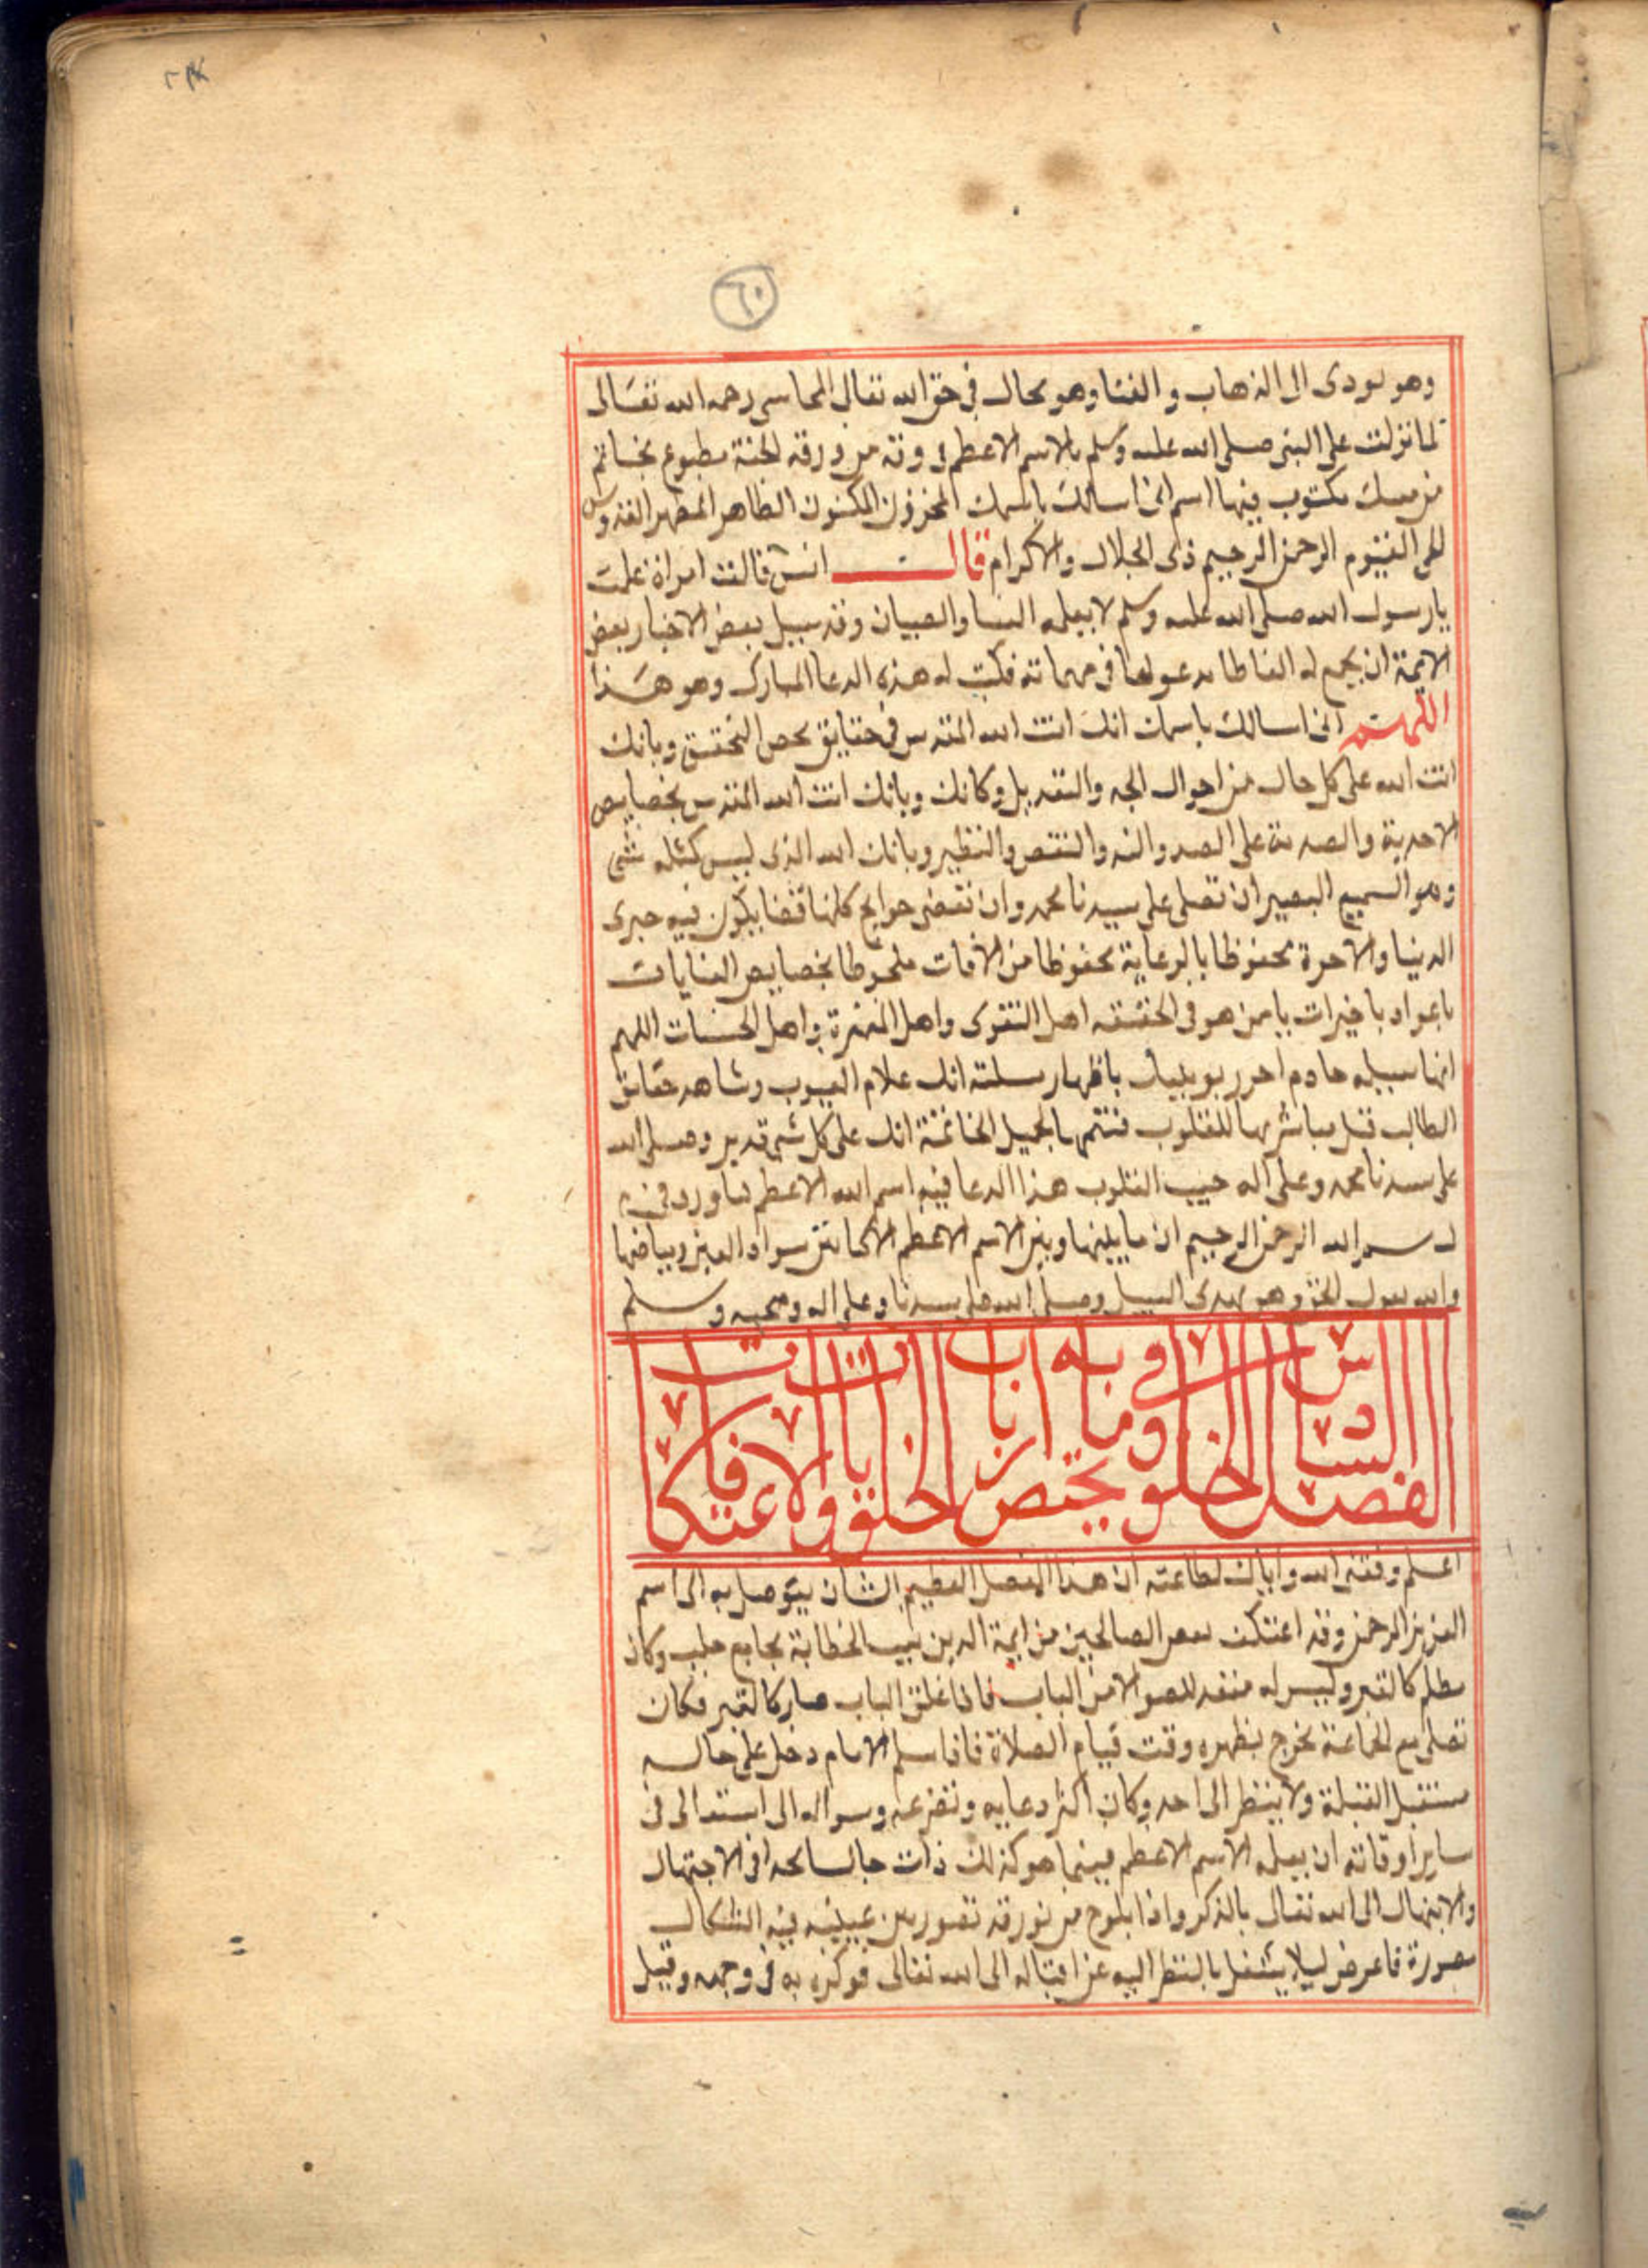 ٦٠
وهو يودى الى الذهاب و الفنا وهو محال فى حق الله تعالى المحاسبى رحمه الله تعالى
لما نزلت على النبى صلى الله عليه وسلم بالاسم الاعظم فى ورقه من ورقة الجنة مطبوع بخاتم
من مسك مكتوب فيها اسم انى اسالك باسمك المخزون المكنون الطاهر المطهر القدوس
الحى القيوم الرحمن الرحيم ذى الجلال والاكرام قالــــت انس فقالت امراة علمت
يارسول الله صلى الله عليه وسلم لا يعلمه النسا والصبيان وقد سبيل بعض الاخبار بعض
الايمة ان يجمع له الفاظا يدعو بها فى مهماته فكتب له هذه الدعا المبارك وهو هذا
اللهم انى اسالك باسمك انك انت الله المقدس فى حقايق محض التحقيق وبانك
انت الله على كل حال من احوال الجد والتعديل وكانك وبانك انت الله المقدس بخصايص
الاحدية والصمدية على الضد والند والنقص والنظير وبانك الله الذى ليس كمثله شى
وهو السميع البصير ان تصلى على سيدنا محمد وان تقضى حوايج كلها قضا يكون فيه خيرى
الدنيا والاخرة محفوظا بالرعاية محفوظا من الافات ملحوظا بخصايص العنايات
ياعواد باخيرات يامن هو فى الحقيقه اهل التقوى واهل المغفرة واهل الحسنات اللهم
انها سبيله خادم احرر بوبيك باظهار سلته انك علام الغيوب وشاهد حقايق
الطالب قبل مباشرتها للقلوب فتتمها بجميل الخاتمة انك على كل شى قدير وصلى الله
على سيدنا محمد وعلى اله حبيب القلوب هذا الدعا فيه اسم الله الاعظم لما ورد فى
بسم الله الرحمن الرحيم ان ما بينها وبين الاسم الاعظم الا كما بين سواد العين وبياضها
والله يقول الحق وهو يهدى السبيل وصلى الله على سيدنا وعلى اله وصحبه وسلم
الفصل السادس فى الخلوة وما يختص به ارباب الخلوات والاعتكافات
اعلم وفقنى الله واياك لطاعته ان هذا الفصل العظيم الشان يتوصل به الى اسم
العزيز الرحمن وقد اعتكف بعض الصالحين من ايمة الدين ببيت الخطابة بجامع حلب وكان
مظلم كالقبر وليس له منفد للضو الا من الباب فاذا غلق الباب صار كالقبر فكان
تصلى مع الجماعة يخرج بظهره وقت قيام الصلاة فاذا سلم الامام دخل على حاله
مستقبل القبلة ولا ينظر الى احد وكان اكثر دعايه وتضرعه وسواله الى الله تعالى فى
ساير اوقاته ان يعلمه الاسم الاعظم فبينما هو كذلك ذات جالسا نحدا فى الاجتهاد
والابتهال الى الله تعالى بالذكر واذا بلوح من نورقد تصور بين عينيه فيه اشكال
مصورة فاعرض ليلا يشتغل بالنظر اليه عن اقباله الى الله تعالى فوكزه به فى وجهه وقيل